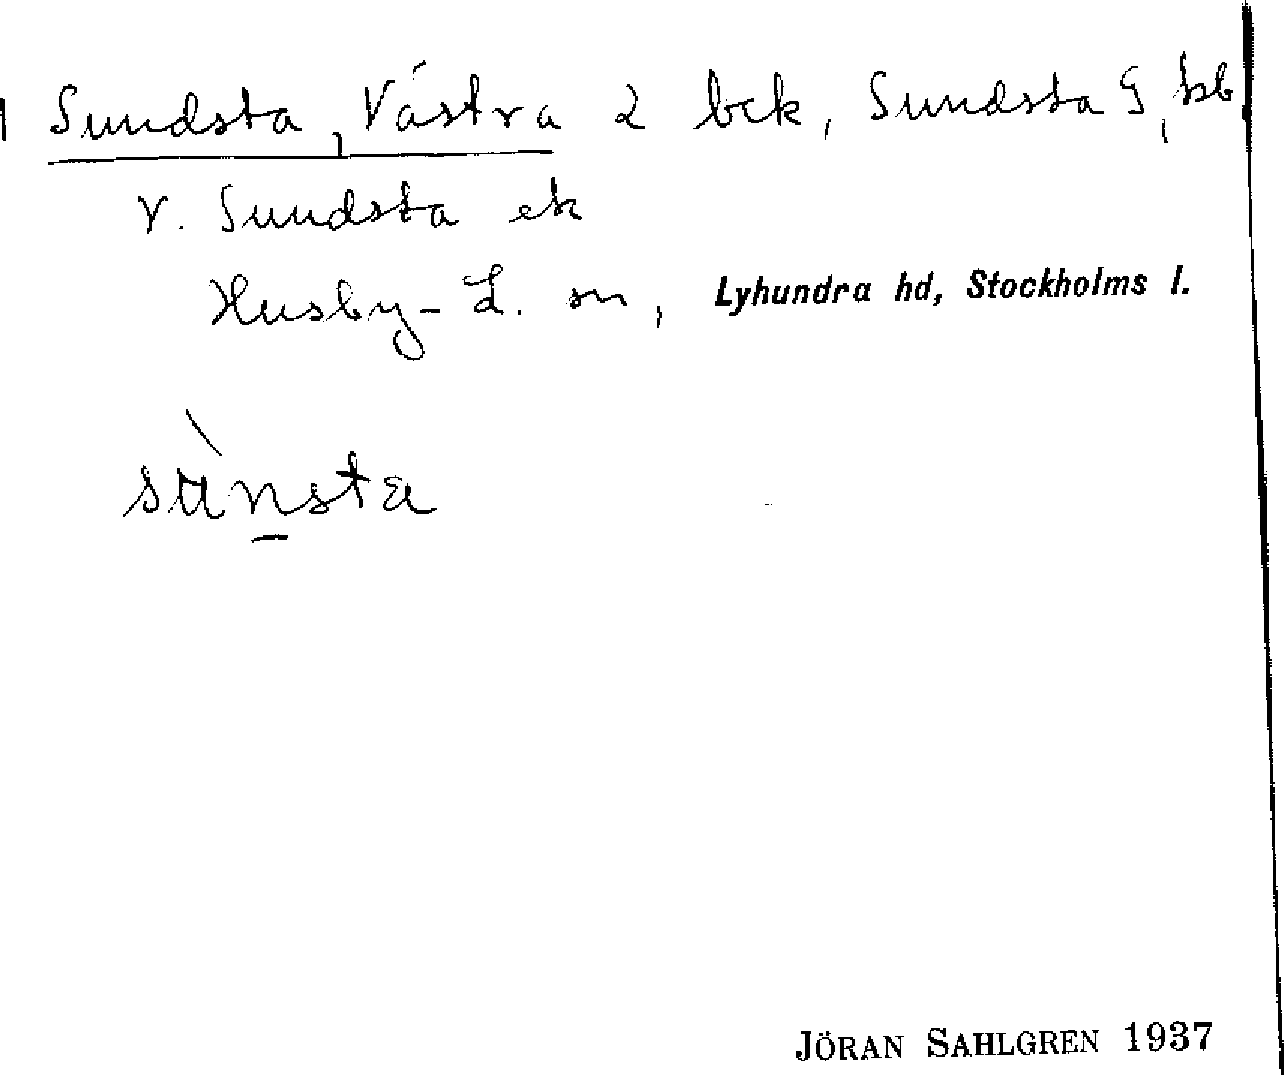 Sundsta, Västra 2 bck, Sundsta G, kb
V. Sundsta ek
Husby-L. sn, Lyhundra hd, Stockholms l.
sùnsta
JÖRAN SAHLGREN 1937